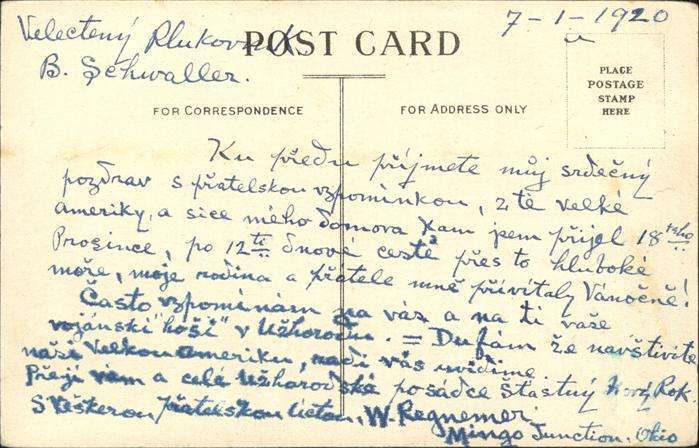 7-1-1920
Velectený Plukovník
B. Schwaller.
POST CARD
PLACE
POSTAGE
STAMP
HERE
FOR CORRESPONDENCE
FOR ADDRESS ONLY
Ku předu příjmete můj srdečný
pozdrav s přatelskou vzpomínkou, z té velké
Ameriky, a sice mého domova kam jsem přijel 18
Prosince, po 12ti dnové cestě přes to hluboké
moře, moje rodina a přátele mně přivítaly Vánočně!
Často vzpomínám na vás a na ti vaše
vojánski "hóši" v Užhorodu. = Dufám že navštivíte
naši Velkou Ameriku, radi vás uvidíme.
Přeji vám a celé Užhorodské posádce štastný Nový Rok
S Veškerou přatelskou W. Regnemer
Mingo Junction. Ohio